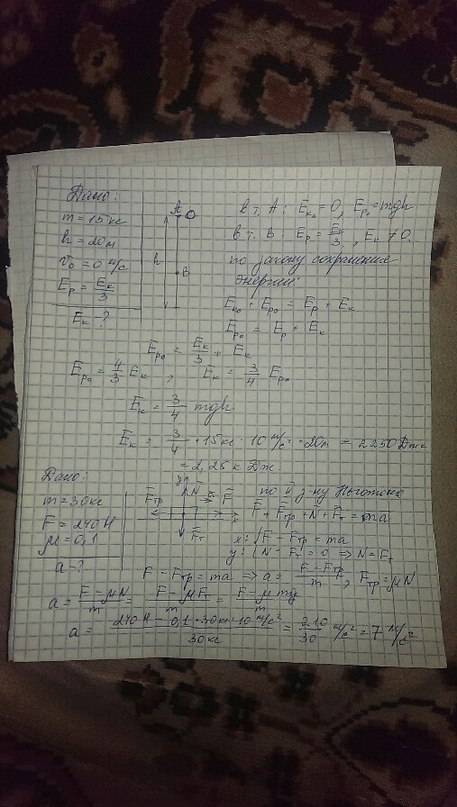 Дано:
m = 15 кг
h = 20 м
v₀ = 0 м/с
Eₚ = Eₖ/3
Eₖ - ?
A
h
B
в т. А: Eₖ₀ = 0, Eₚ₀ = mgh
в т. В: Eₚ = Eₖ/3, Eₖ ≠ 0.
по закону сохранения
энергии:
Eₖ₀ + Eₚ₀ = Eₚ + Eₖ
Eₚ₀ = Eₚ + Eₖ
Eₚ₀ = Eₖ/3 + Eₖ
Eₚ₀ = 4/3 Eₖ, Eₖ = 3/4 Eₚ₀
Eₖ = 3/4 mgh
Eₖ = 3/4 · 15 кг · 10 м/с² · 20 м = 2250 Дж
= 2,25 к Дж.
Дано:
m = 30 кг
F = 240 Н
μ = 0,1
a - ?
y N a
Fтр F
x
Fт
по II з-ну Ньютона
F + Fтр + N + Fт = ma
x: F - Fтр = ma
y: N - Fт = 0 ⇒ N = Fт
F - Fтр = ma ⇒ a = (F - Fтр)/m, Fтр = μN
a = (F - μN)/m = (F - μFт)/m = (F - μmg)/m
a = (240 Н - 0,1 · 30 кг · 10 м/с²)/30 кг = 210/30 м/с² = 7 м/с²